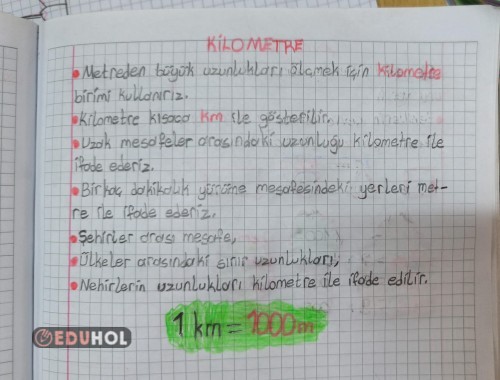 KİLOMETRE
• Metreden büyük uzunlukları ölçmek için kilometre
birimi kullanırız.
• Kilometre kısaca km ile gösterilir.
• Uzak mesafeler arasındaki uzunluğu kilometre ile
ifade ederiz.
• Birkaç dakikalık yürüme mesafesindeki yerleri met-
re ile ifade ederiz.
• Şehirler arası mesafe,
• Ülkeler arasındaki sınır uzunlukları,
• Nehirlerin uzunlukları kilometre ile ifade edilir.
1 km = 1000m
EDUHOL